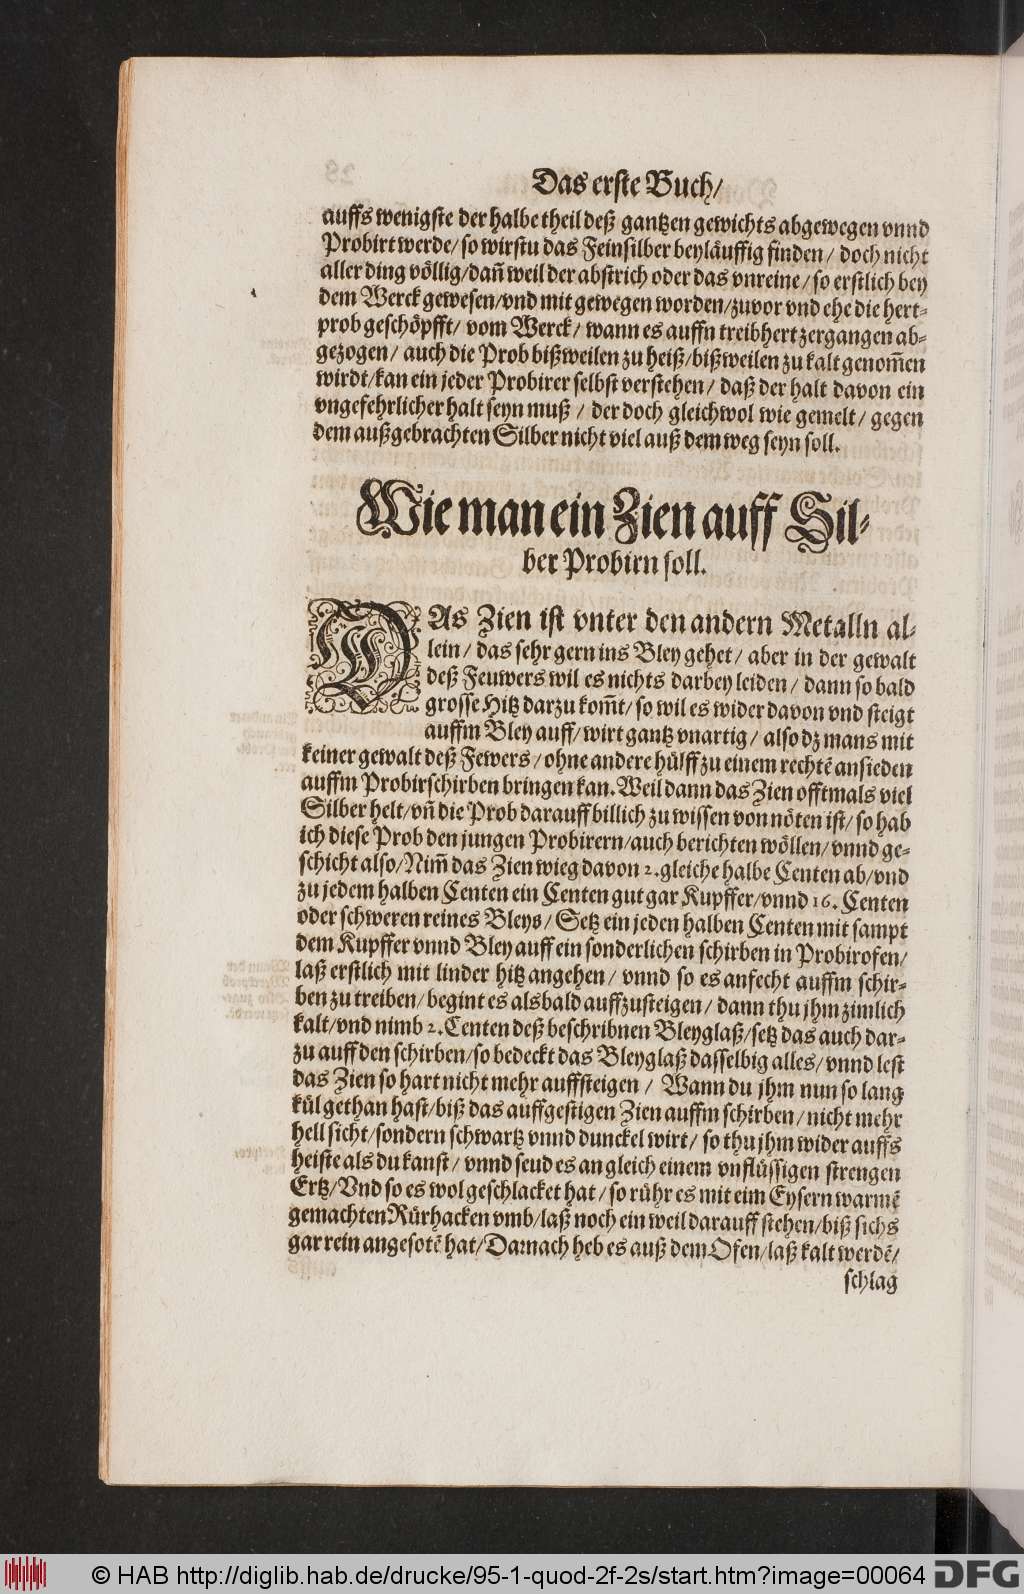 Das erste Buch/
auffs wenigste der halbe theil deß gantzen gewichts abgewegen vnnd
Probirt werde/ so wirstu das Feinsilber beyläuffig finden/ doch nicht
aller ding völlig/ dañ weil der abstrich oder das vnreine/ so erstlich bey
dem Werck gewesen/ vnd mit gewegen worden/ zuvor vnd ehe die hert-
prob geschöpfft/ vom Werck/ wann es auffn treibhert zergangen ab-
gezogen/ auch die Prob bißweilen zu heiß/ bißweilen zu kalt genom̃en
wirdt/ kan ein jeder Probirer selbst verstehen/ daß der halt davon ein
vngefehrlicher halt seyn muß/ der doch gleichwol wie gemelt/ gegen
dem außgebrachten Silber nicht viel auß dem weg seyn soll.
Wie man ein Zien auff Sil-
ber Probirn soll.
DAs Zien ist vnter den andern Metalln al-
lein/ das sehr gern ins Bley gehet/ aber in der gewalt
deß Feuwers wil es nichts darbey leiden/ dann so bald
grosse Hitz darzu kom̃t/ so wil es wider davon vnd steigt
auffm Bley auff/ wirt gantz vnartig/ also dz mans mit
keiner gewalt deß Fewers/ ohne andere hülff zu einem rechtē ansieden
auffm Probirschirben bringen kan. Weil dann das Zien offtmals viel
Silber helt/ vñ die Prob darauff billich zu wissen von nöten ist/ so hab
ich diese Prob den jungen Probirern/ auch berichten wöllen/ vnnd ge-
schicht also/ Nim̃ das Zien wieg davon 2. gleiche halbe Centen ab/ vnd
zu jedem halben Centen ein Centen gut gar Kupffer/ vnnd 16. Centen
oder schweren reines Bleys/ Setz ein jeden halben Centen mit sampt
dem Kupffer vnnd Bley auff ein sonderlichen schirben in Probirofen/
laß erstlich mit linder hitz angehen/ vnnd so es anfecht auffm schir-
ben zu treiben/ begint es alsbald auffzusteigen/ dann thu jhm zimlich
kalt/ vnd nimb 2. Centen deß beschribnen Bleyglaß/ setz das auch dar-
zu auff den schirben/ so bedeckt das Bleyglaß dasselbig alles/ vnnd lest
das Zien so hart nicht mehr auffsteigen/ Wann du jhm nun so lang
kül gethan hast/ biß das auffgestigen Zien auffm schirben/ nicht mehr
hell sicht/ sondern schwartz vnnd dunckel wirt/ so thu jhm wider auffs
heiste als du kanst/ vnnd seud es an gleich einem vnflüssigen strengen
Ertz/ Vnd so es wol geschlacket hat/ so rühr es mit eim Eysern warmē
gemachten Rürhacken vmb/ laß noch ein weil darauff stehen/ biß sichs
gar rein angesotē hat/ Darnach heb es auß dem Ofen/ laß kalt werdē/
schlag
© HAB http://diglib.hab.de/drucke/95-1-quod-2f-2s/start.htm?image=00064
DFG